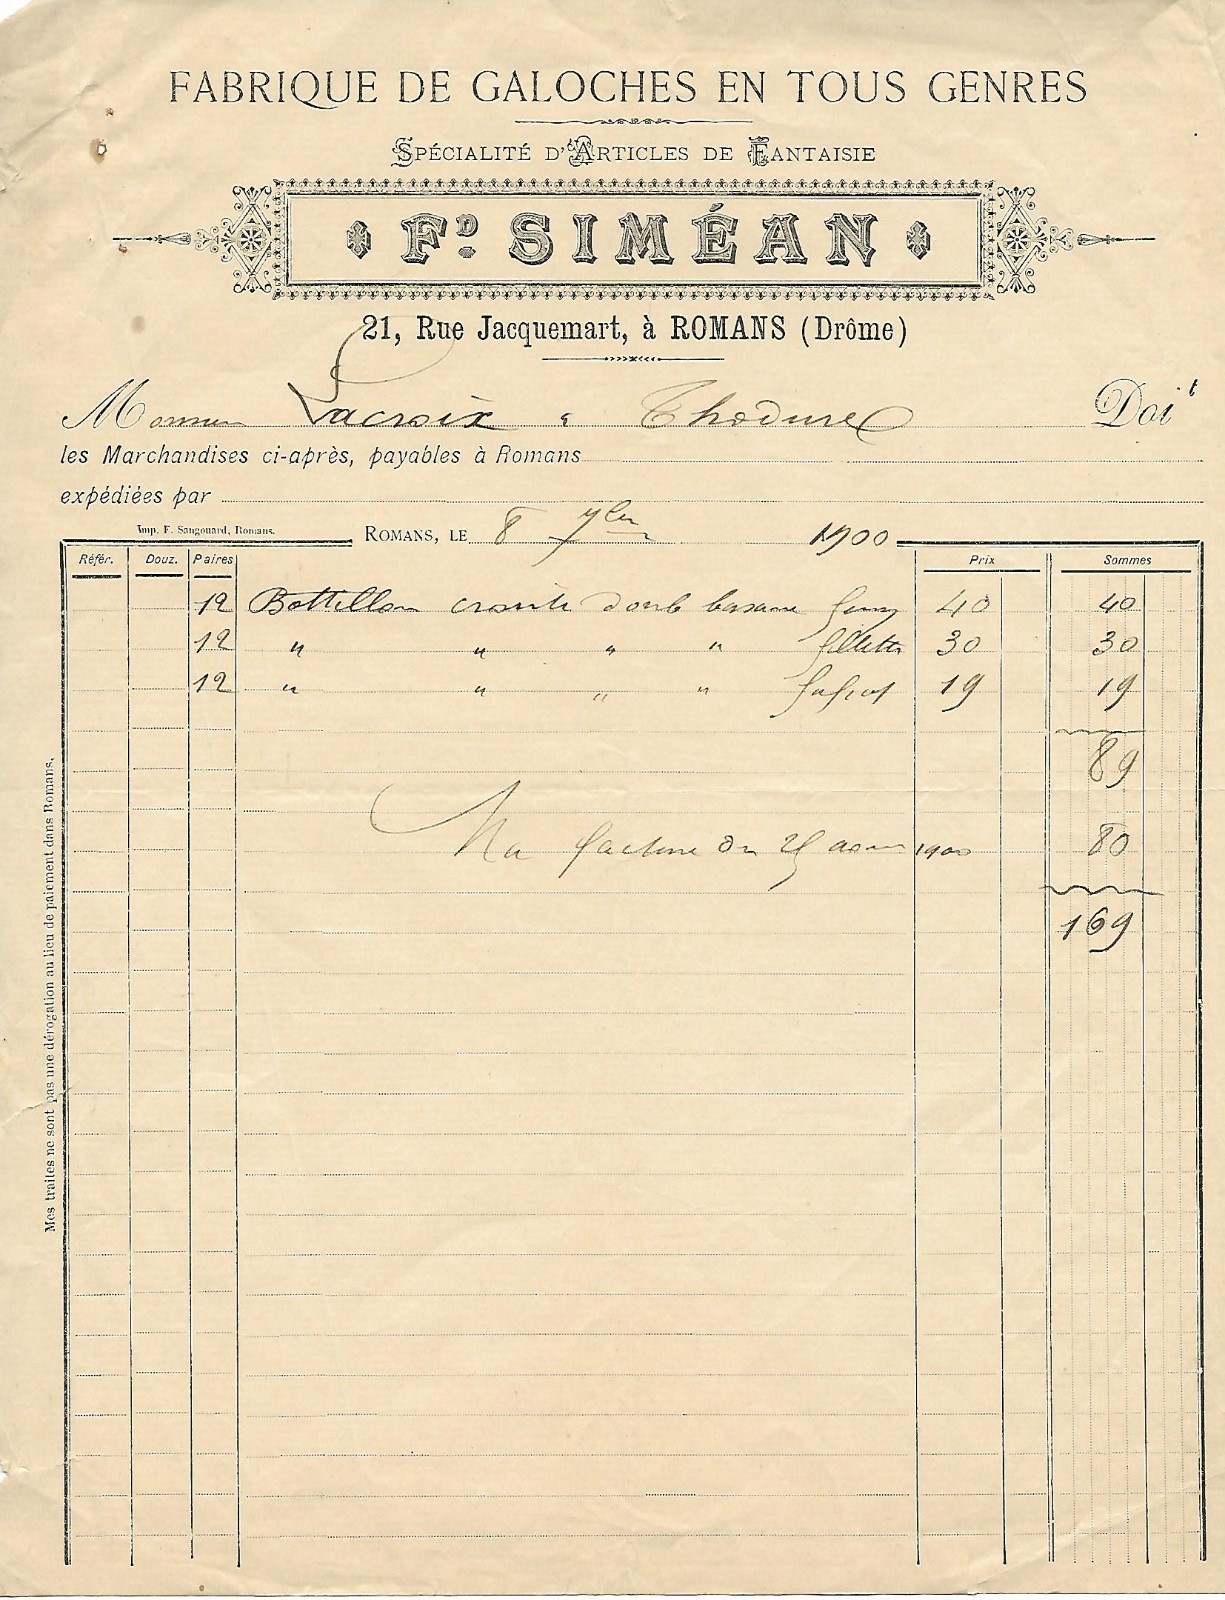 FABRIQUE DE GALOCHES EN TOUS GENRES
SPÉCIALITÉ D'ARTICLES DE FANTAISIE
FD. SIMÉAN
21, Rue Jacquemart, à ROMANS (Drôme)
Monsieur Lacroix à Thodure Doit
les Marchandises ci-après, payables à Romans
expédiées par
Imp. F. Sangouard, Romans.
ROMANS, LE 8 7bre 1900
Référ. Douz. Paires Prix Sommes
12 Bottillon croute doub basane 40 40
12 " " " " fillette 30 30
12 " " " " 19 19
89
Ma facture du août 1900 80
169
Mes traites ne sont pas une dérogation au lieu de paiement dans Romans.